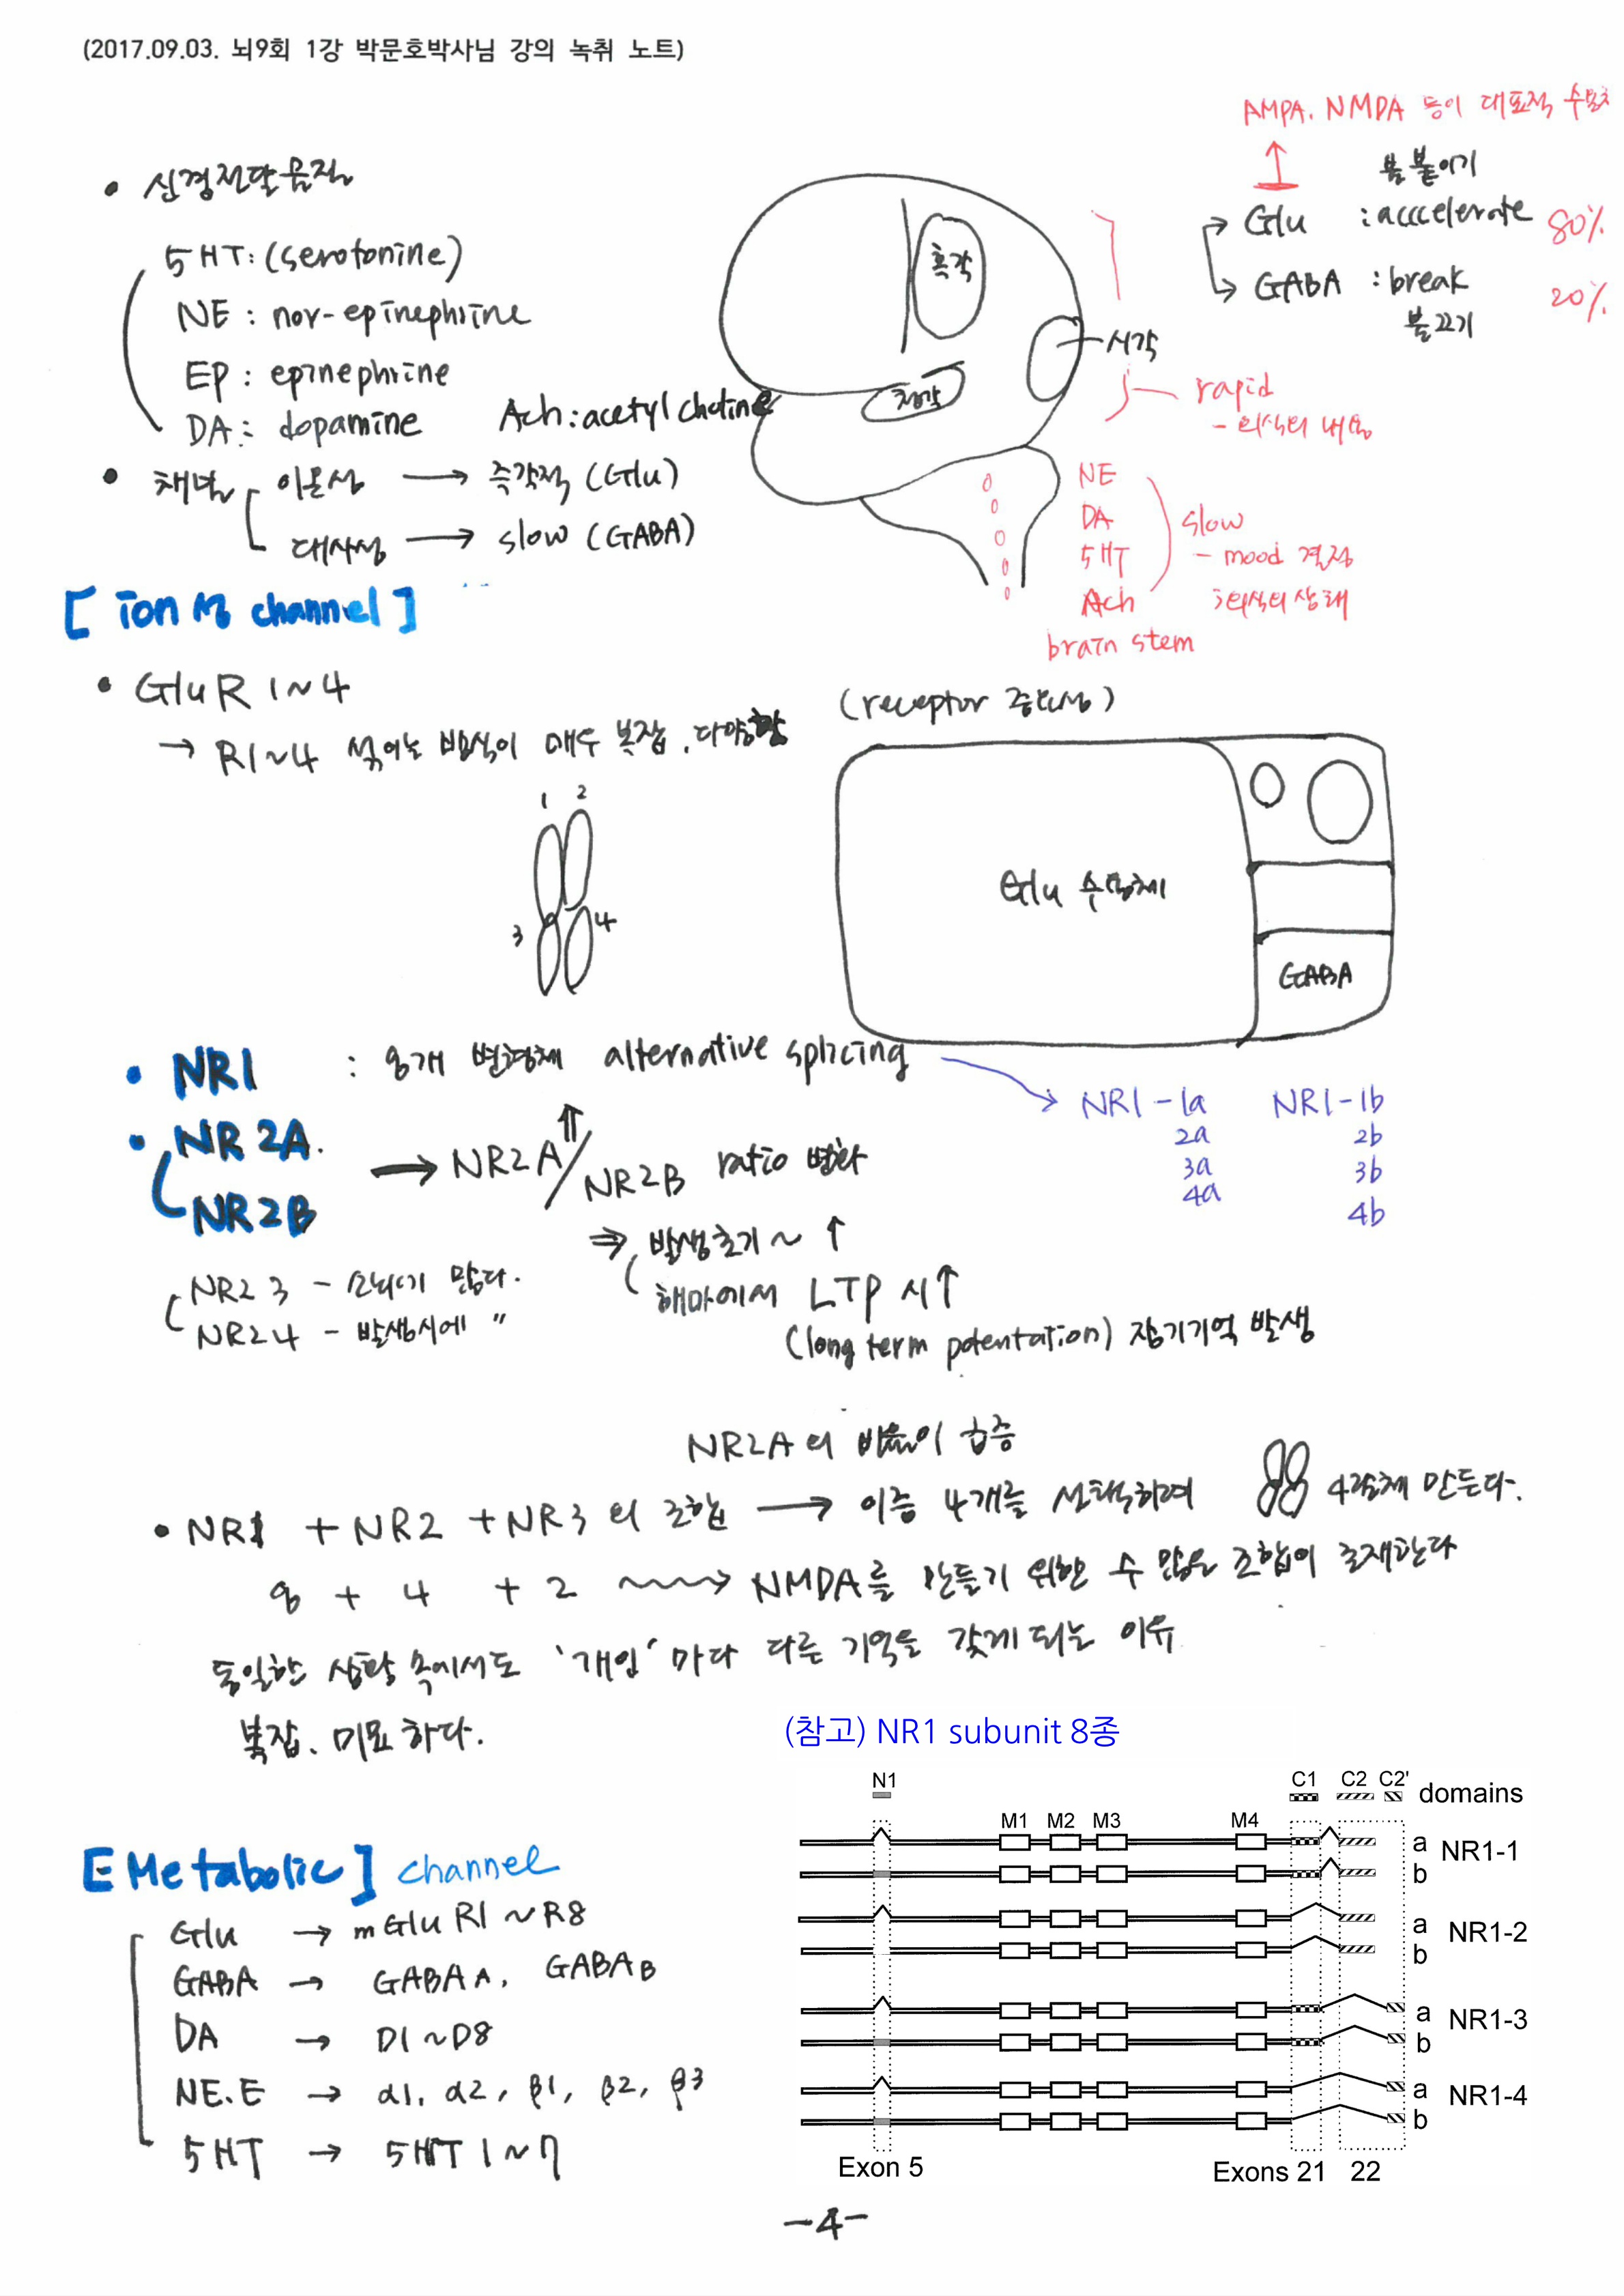 (2017.09.03. 뇌9회 1강 박문호박사님 강의 녹취 노트)
AMPA. NMDA 등이 대표적 수용체
• 신경전달물질
불붙이기
Glu : acccelerate 80%
GABA : break 20%
불끄기
5HT : (serotonine)
NE : nor-epinephrine
EP : epinephrine
DA : dopamine
Ach : acetylcholine
촉각
시각
청각
rapid
- 의식의 내용
• 채널
이온성 → 즉각적 (Glu)
대사성 → slow (GABA)
NE
DA
5HT
Ach
slow
- mood 결정
의식의 상태
brain stem
[ion channel]
• GluR 1~4
→ R1~4 섞이는 방식이 매우 복잡. 다양함
1 2
3 4
(receptor 중요성)
Glu 수용체
GABA
• NR1 : 8개 변형체 alternative splicing
→ NR1-1a NR1-1b
2a 2b
3a 3b
4a 4b
• NR2A.
NR2B
→ NR2A⇑/NR2B ratio 변화
⇒ 발생초기~ ↑
해마에서 LTP시↑
(long term potentation) 장기기억 발생
NR23 - 많다.
NR24 - 발생시에 〃
NR2A의 비율이 급증
• NR1 + NR2 + NR3의 조합 → 이중 4개를 선택하여 4량체 만든다.
8 + 4 + 2 → NMDA를 만들기 위한 수 많은 조합이 존재한다
동일한 상황 속에서도 '개인'마다 다른 기억을 갖게 되는 이유
복잡. 미묘하다.
(참고) NR1 subunit 8종
N1 C1 C2 C2' domains
M1 M2 M3 M4
a
b
NR1-1
a
b
NR1-2
a
b
NR1-3
a
b
NR1-4
Exon 5 Exons 21 22
[Metabolic] channel
Glu → mGluR1~R8
GABA → GABA A. GABA B
DA → D1~D8
NE.E → α1. α2, β1, β2, β3
5HT → 5HT1~7
-4-